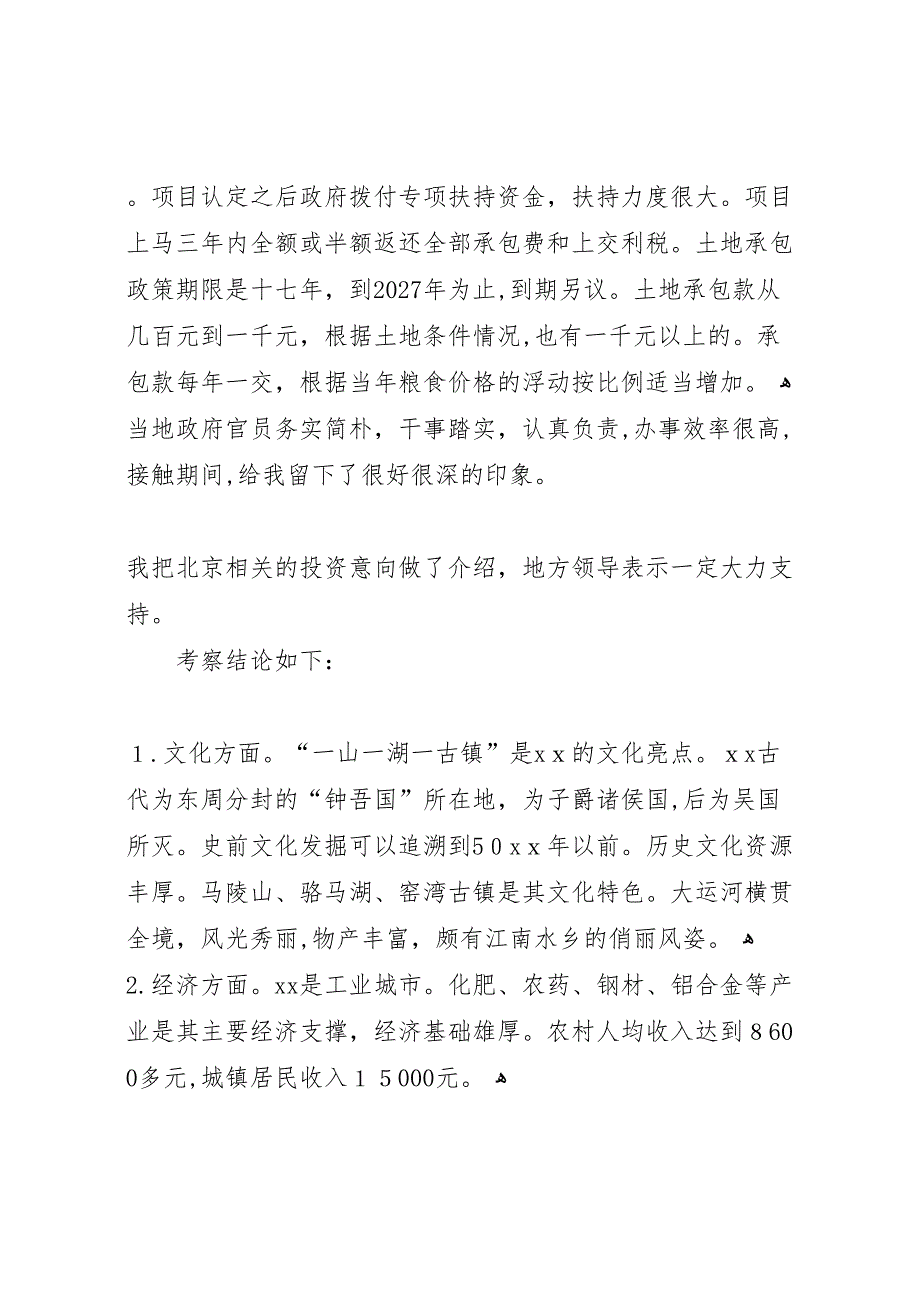 。项目认定之后政府拨付专项扶持资金，扶持力度很大。项目
上马三年内全额或半额返还全部承包费和上交利税。土地承包
政策期限是十七年，到2027年为止,到期另议。土地承包款从
几百元到一千元，根据土地条件情况,也有一千元以上的。承
包款每年一交，根据当年粮食价格的浮动按比例适当增加。 ﻫ
当地政府官员务实简朴，干事踏实，认真负责,办事效率很高,
接触期间,给我留下了很好很深的印象。
我把北京相关的投资意向做了介绍，地方领导表示一定大力支
持。
考察结论如下：
１.文化方面。“一山一湖一古镇”是xｘ的文化亮点。ｘx古
代为东周分封的“钟吾国”所在地，为子爵诸侯国,后为吴国
所灭。史前文化发掘可以追溯到5０xｘ年以前。历史文化资源
丰厚。马陵山、骆马湖、窑湾古镇是其文化特色。大运河横贯
全境，风光秀丽,物产丰富，颇有江南水乡的俏丽风姿。 ﻫ
2.经济方面。xx是工业城市。化肥、农药、钢材、铝合金等产
业是其主要经济支撑，经济基础雄厚。农村人均收入达到８60
0多元,城镇居民收入１５000元。 ﻫ